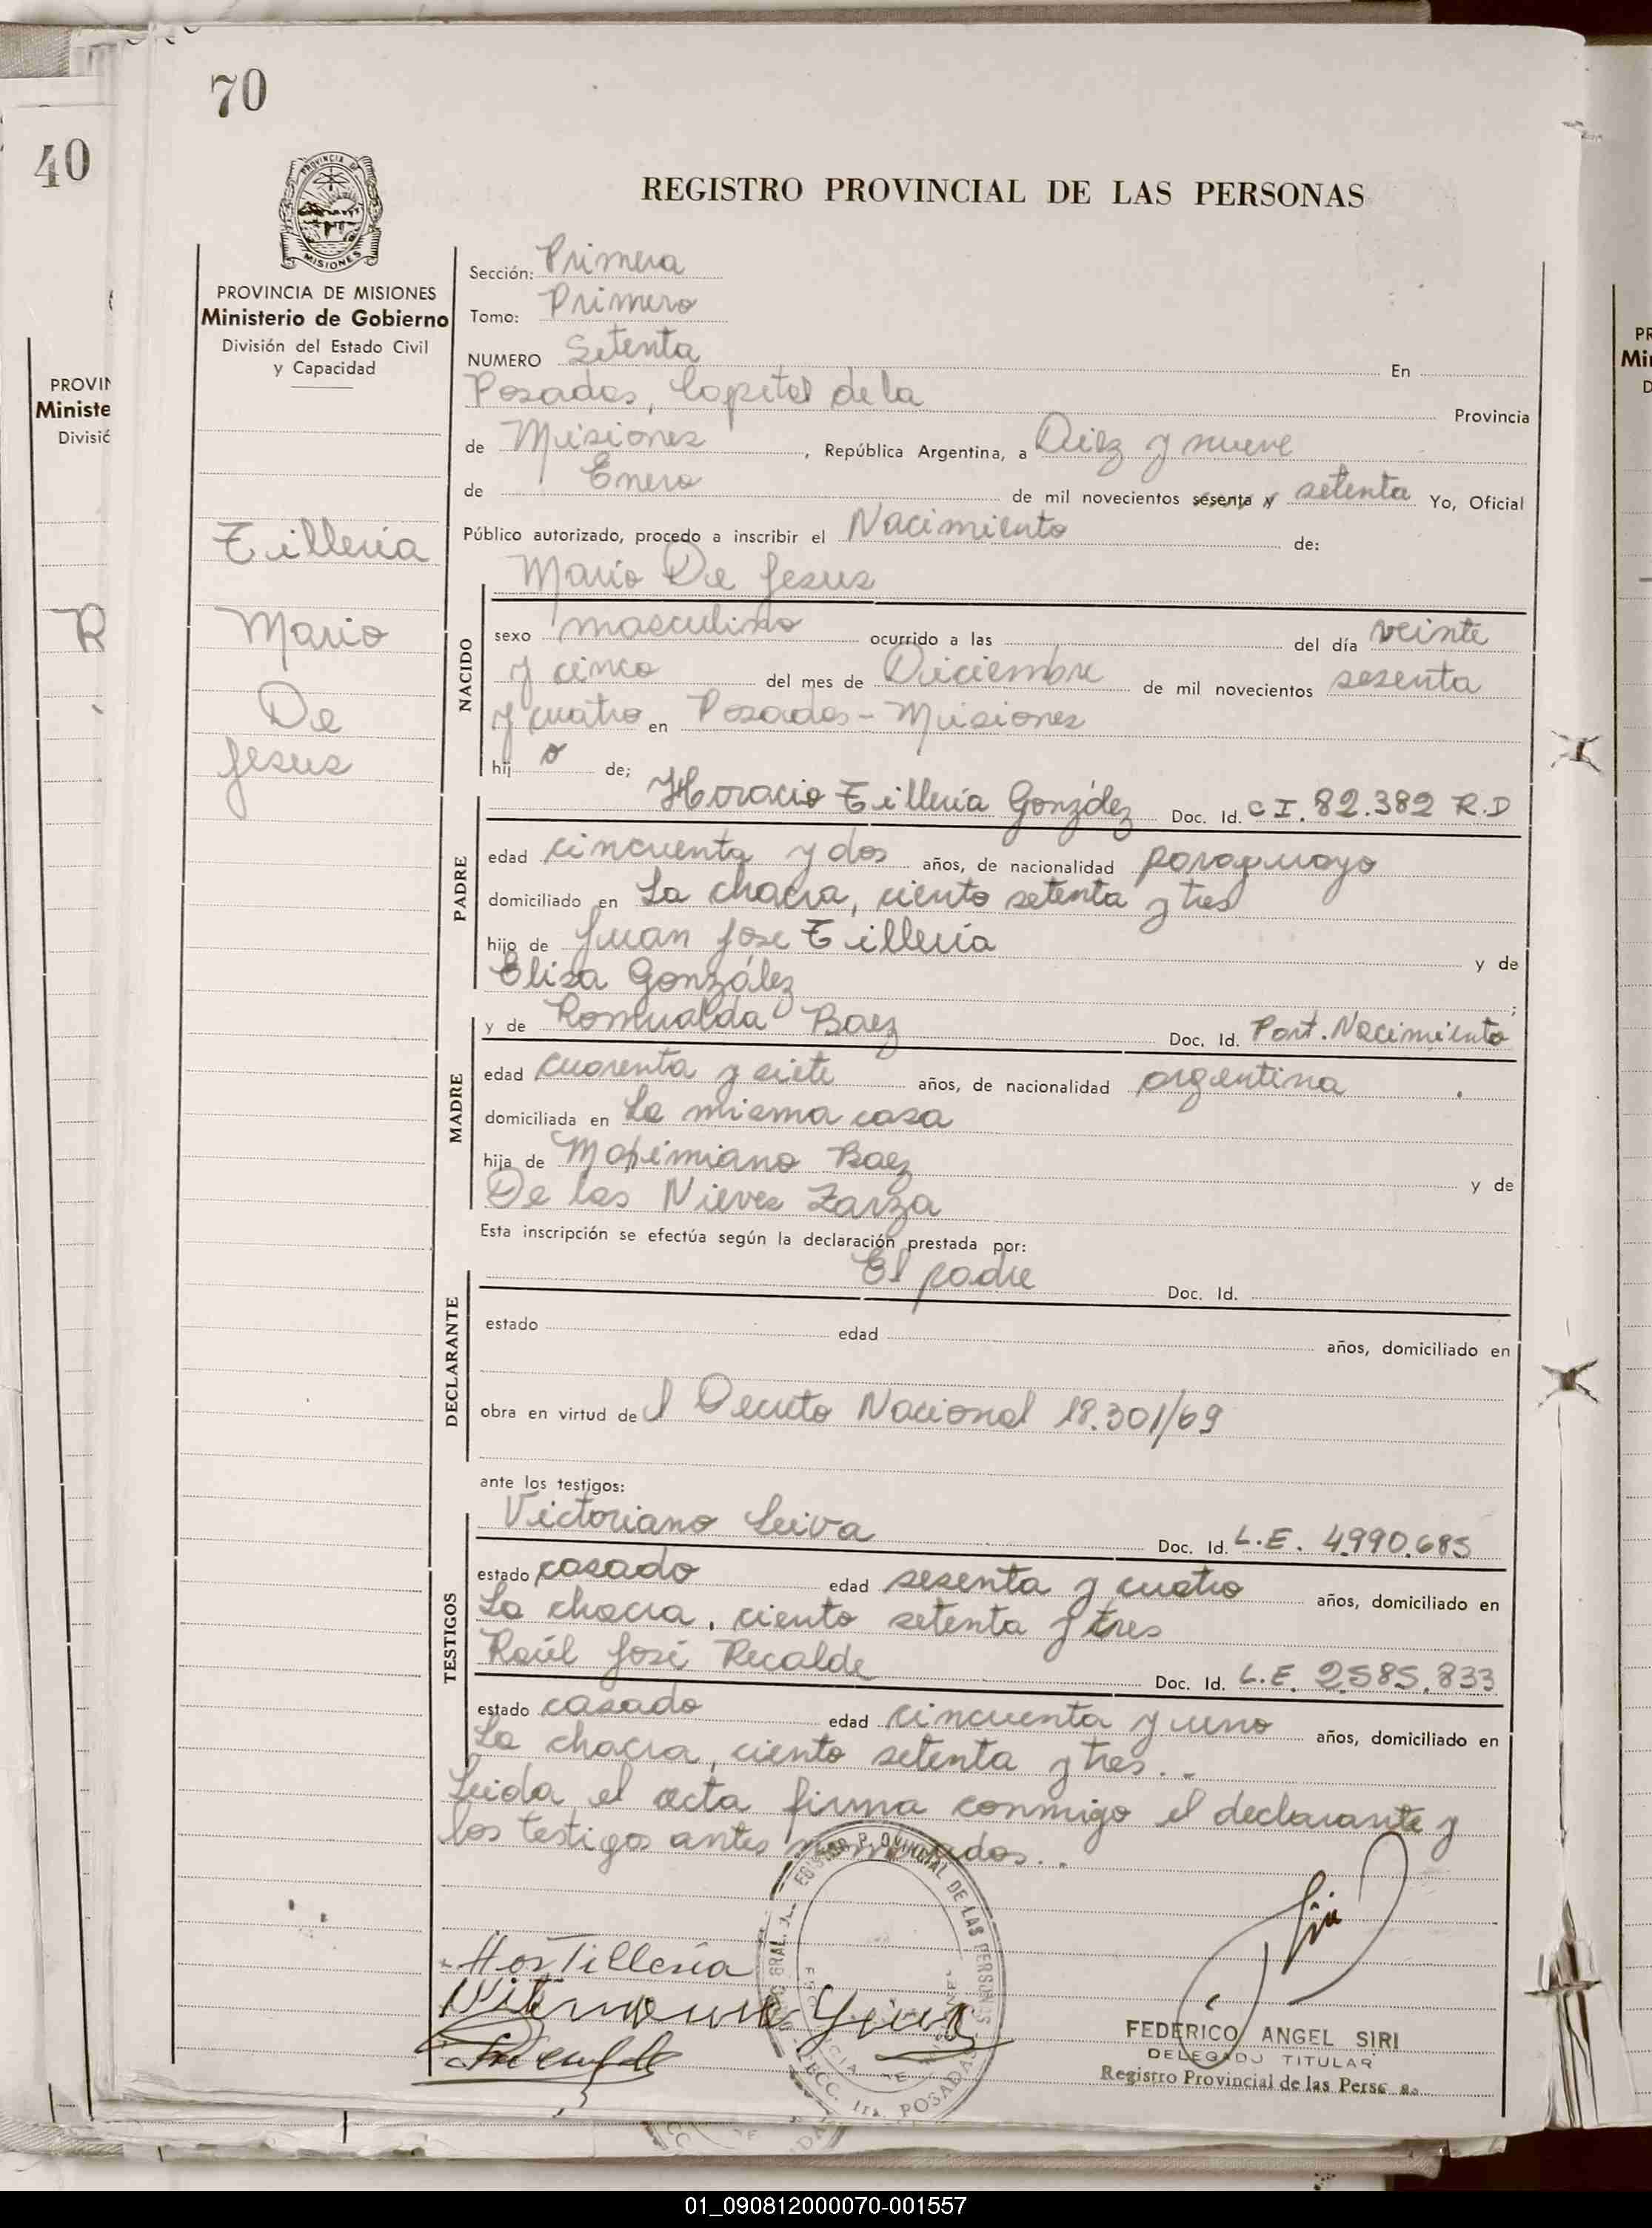 70
40
REGISTRO PROVINCIAL DE LAS PERSONAS
PROVINCIA DE
MISIONES
PROVINCIA DE MISIONES
Ministerio de Gobierno
División del Estado Civil
y Capacidad
Tillería
Mario
De
Jesus
Sección: Primera
Tomo: Primero
NUMERO Setenta En
Posadas, Capital de la Provincia
de Misiones, República Argentina, a Diez y nueve
de Enero de mil novecientos sesenta y setenta Yo, Oficial
Público autorizado, procedo a inscribir el Nacimiento de:
Mario De Jesus
NACIDO
sexo masculino ocurrido a las del día veinte
y cinco del mes de Diciembre de mil novecientos sesenta
y cuatro en Posadas - Misiones
hij o de;
PADRE
Horacio Tillería González Doc. Id. C I. 82.382 R.D
edad cincuenta y dos años, de nacionalidad paraguayo
domiciliado en La chacra, ciento setenta y tres
hijo de Juan Jose Tillería y de
Elisa González ;
MADRE
y de Romualda Baez Doc. Id. Part. Nacimiento
edad cuarenta y siete años, de nacionalidad argentina
domiciliada en La misma casa
hija de Maximiano Baez y de
De las Nieves Zarza
Esta inscripción se efectúa según la declaración prestada por:
DECLARANTE
El padre Doc. Id.
estado edad años, domiciliado en
obra en virtud de l Decreto Nacional 18.301/69
ante los testigos:
TESTIGOS
Victoriano Leiva Doc. Id. L.E. 4990.685
estado casado edad sesenta y cuatro años, domiciliado en
La chacra, ciento setenta y tres
Raúl José Recalde Doc. Id. L.E. 2.585.833
estado casado edad cincuenta y uno años, domiciliado en
La chacra, ciento setenta y tres..
Leida el acta firma conmigo el declarante y
los testigos antes nombrados..
Hor Tillería
FEDERICO ANGEL SIRI
DELEGADO TITULAR
Registro Provincial de las Pers
POSADAS
PROVIN
Ministe
Divisió
R
PR
Mi
D
01_090812000070-001557